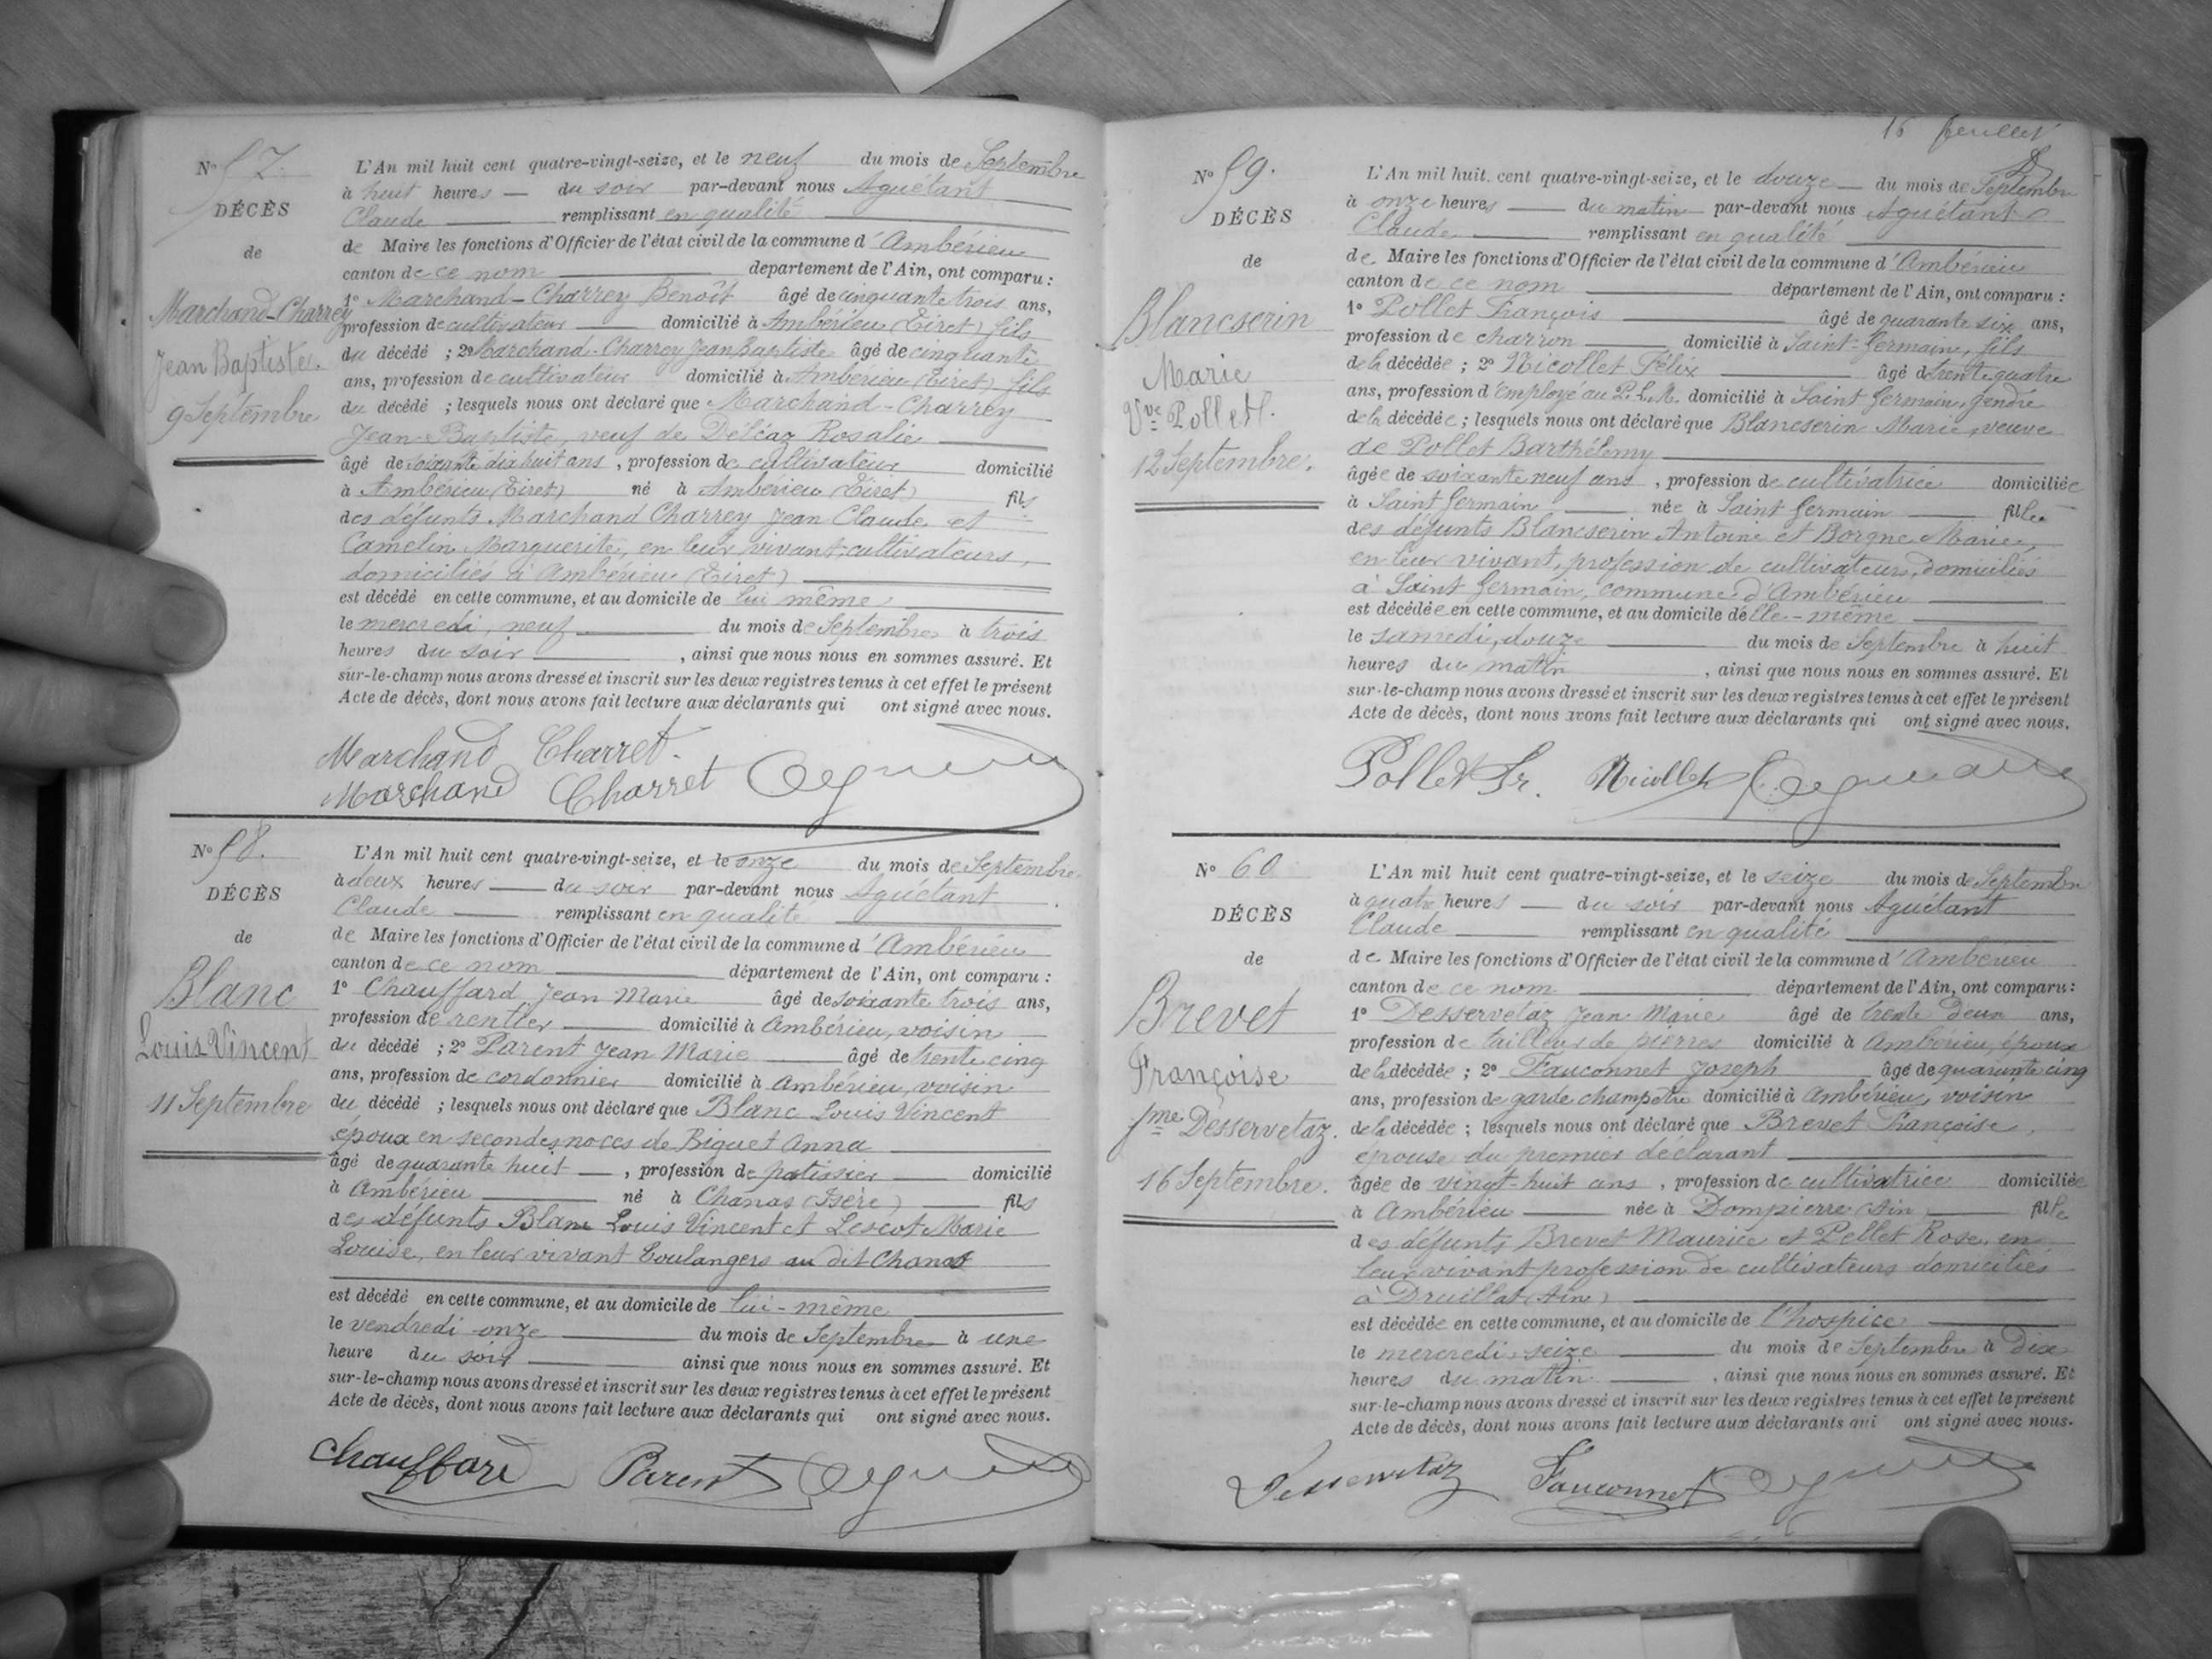 Nº 57.
DÉCÈS
de
Marchand-Charrey
Jean Baptiste.
9 Septembre
L'An mil huit cent quatre-vingt-seize, et le neuf du mois de Septembre
à huit heures — du soir par-devant nous Aguétant
Claude remplissant en qualité
de Maire les fonctions d'Officier de l'état civil de la commune d'Ambérieu
canton de ce nom département de l'Ain, ont comparu :
1º Marchand-Charrey Benoît âgé de cinquante trois ans,
profession de cultivateur domicilié à Ambérieu (Tiret) fils
du décédé ; 2º Marchand-Charrey Jean Baptiste âgé de cinquante
ans, profession de cultivateur domicilié à Ambérieu (Tiret) fils
du décédé ; lesquels nous ont déclaré que Marchand-Charrey
Jean Baptiste, veuf de Déléaz Rosalie
âgé de soixante dix huit ans, profession de cultivateur domicilié
à Ambérieu (Tiret) né à Ambérieu (Tiret) fils
des défunts Marchand Charrey Jean Claude et
Camelin Marguerite, en leur vivant cultivateurs,
domiciliés à Ambérieu (Tiret)
est décédé en cette commune, et au domicile de lui même
le mercredi, neuf du mois de Septembre à trois
heures du soir, ainsi que nous nous en sommes assuré. Et
sur-le-champ nous avons dressé et inscrit sur les deux registres tenus à cet effet le présent
Acte de décès, dont nous avons fait lecture aux déclarants qui ont signé avec nous.
Marchand Charret.
Marchand Charret
Nº 58.
DÉCÈS
de
Blanc
Louis Vincent
11 Septembre
L'An mil huit cent quatre-vingt-seize, et le onze du mois de Septembre
à deux heures — du soir par-devant nous Aguétant
Claude remplissant en qualité
de Maire les fonctions d'Officier de l'état civil de la commune d'Ambérieu
canton de ce nom département de l'Ain, ont comparu :
1º Chauffard Jean Marie âgé de soixante trois ans,
profession de rentier domicilié à Ambérieu, voisin
du décédé ; 2º Parent Jean Marie âgé de trente cinq
ans, profession de cordonnier domicilié à Ambérieu, voisin
du décédé ; lesquels nous ont déclaré que Blanc Louis Vincent
époux en secondes noces de Biguet Anna
âgé de quarante huit —, profession de patissier domicilié
à Ambérieu né à Chanas (Isère) fils
des défunts Blanc Louis Vincent et Lescot Marie
Louise, en leur vivant boulangers au dit Chanas
est décédé en cette commune, et au domicile de lui-même
le vendredi onze du mois de Septembre à une
heure du soir ainsi que nous nous en sommes assuré. Et
sur-le-champ nous avons dressé et inscrit sur les deux registres tenus à cet effet le présent
Acte de décès, dont nous avons fait lecture aux déclarants qui ont signé avec nous.
Chauffard Parent
16 feuillet
Nº 59.
DÉCÈS
de
Blancserin
Marie
Vve Pollet.
12 Septembre.
L'An mil huit cent quatre-vingt-seize, et le douze — du mois de Septembre
à onze heures — du matin par-devant nous Aguétant
Claude remplissant en qualité
de Maire les fonctions d'Officier de l'état civil de la commune d'Ambérieu
canton de ce nom département de l'Ain, ont comparu :
1º Pollet François âgé de quarante six ans,
profession de charron domicilié à Saint-Germain, fils
de la décédée ; 2º Nicollet Félix âgé de trente quatre
ans, profession d'employé au P.L.M. domicilié à Saint Germain, gendre
de la décédée ; lesquels nous ont déclaré que Blancserin Marie, veuve
de Pollet Barthélemy
âgée de soixante neuf ans, profession de cultivatrice domiciliée
à Saint Germain née à Saint Germain fille
des défunts Blancserin Antoine et Borgne Marie,
en leur vivant, profession de cultivateurs, domiciliés
à Saint Germain, commune d'Ambérieu
est décédée en cette commune, et au domicile d'elle-même
le samedi, douze du mois de Septembre à huit
heures du matin, ainsi que nous nous en sommes assuré. Et
sur-le-champ nous avons dressé et inscrit sur les deux registres tenus à cet effet le présent
Acte de décès, dont nous avons fait lecture aux déclarants qui ont signé avec nous.
Pollet Fr. Nicollet
Nº 60
DÉCÈS
de
Brevet
Françoise
fme Desservetaz.
16 Septembre.
L'An mil huit cent quatre-vingt-seize, et le seize du mois de Septembre
à quatre heures — du soir par-devant nous Aguétant
Claude remplissant en qualité
de Maire les fonctions d'Officier de l'état civil de la commune d'Ambérieu
canton de ce nom département de l'Ain, ont comparu :
1º Desservetaz Jean Marie âgé de trente deux ans,
profession de tailleur de pierres domicilié à Ambérieu, époux
de la décédée ; 2º Fauconnet Joseph âgé de quarante cinq
ans, profession de garde champêtre domicilié à Ambérieu, voisin
de la décédée ; lesquels nous ont déclaré que Brevet Françoise,
épouse du premier déclarant
âgée de vingt-huit ans, profession de cultivatrice domiciliée
à Ambérieu née à Dompierre (Ain) fille
des défunts Brevet Maurice et Pellet Rose, en
leur vivant profession de cultivateurs domiciliés
à Druillat (Ain)
est décédée en cette commune, et au domicile de l'hospice
le mercredi seize du mois de Septembre à dix
heures du matin, ainsi que nous nous en sommes assuré. Et
sur-le-champ nous avons dressé et inscrit sur les deux registres tenus à cet effet le présent
Acte de décès, dont nous avons fait lecture aux déclarants qui ont signé avec nous.
Desservetaz Fauconnet